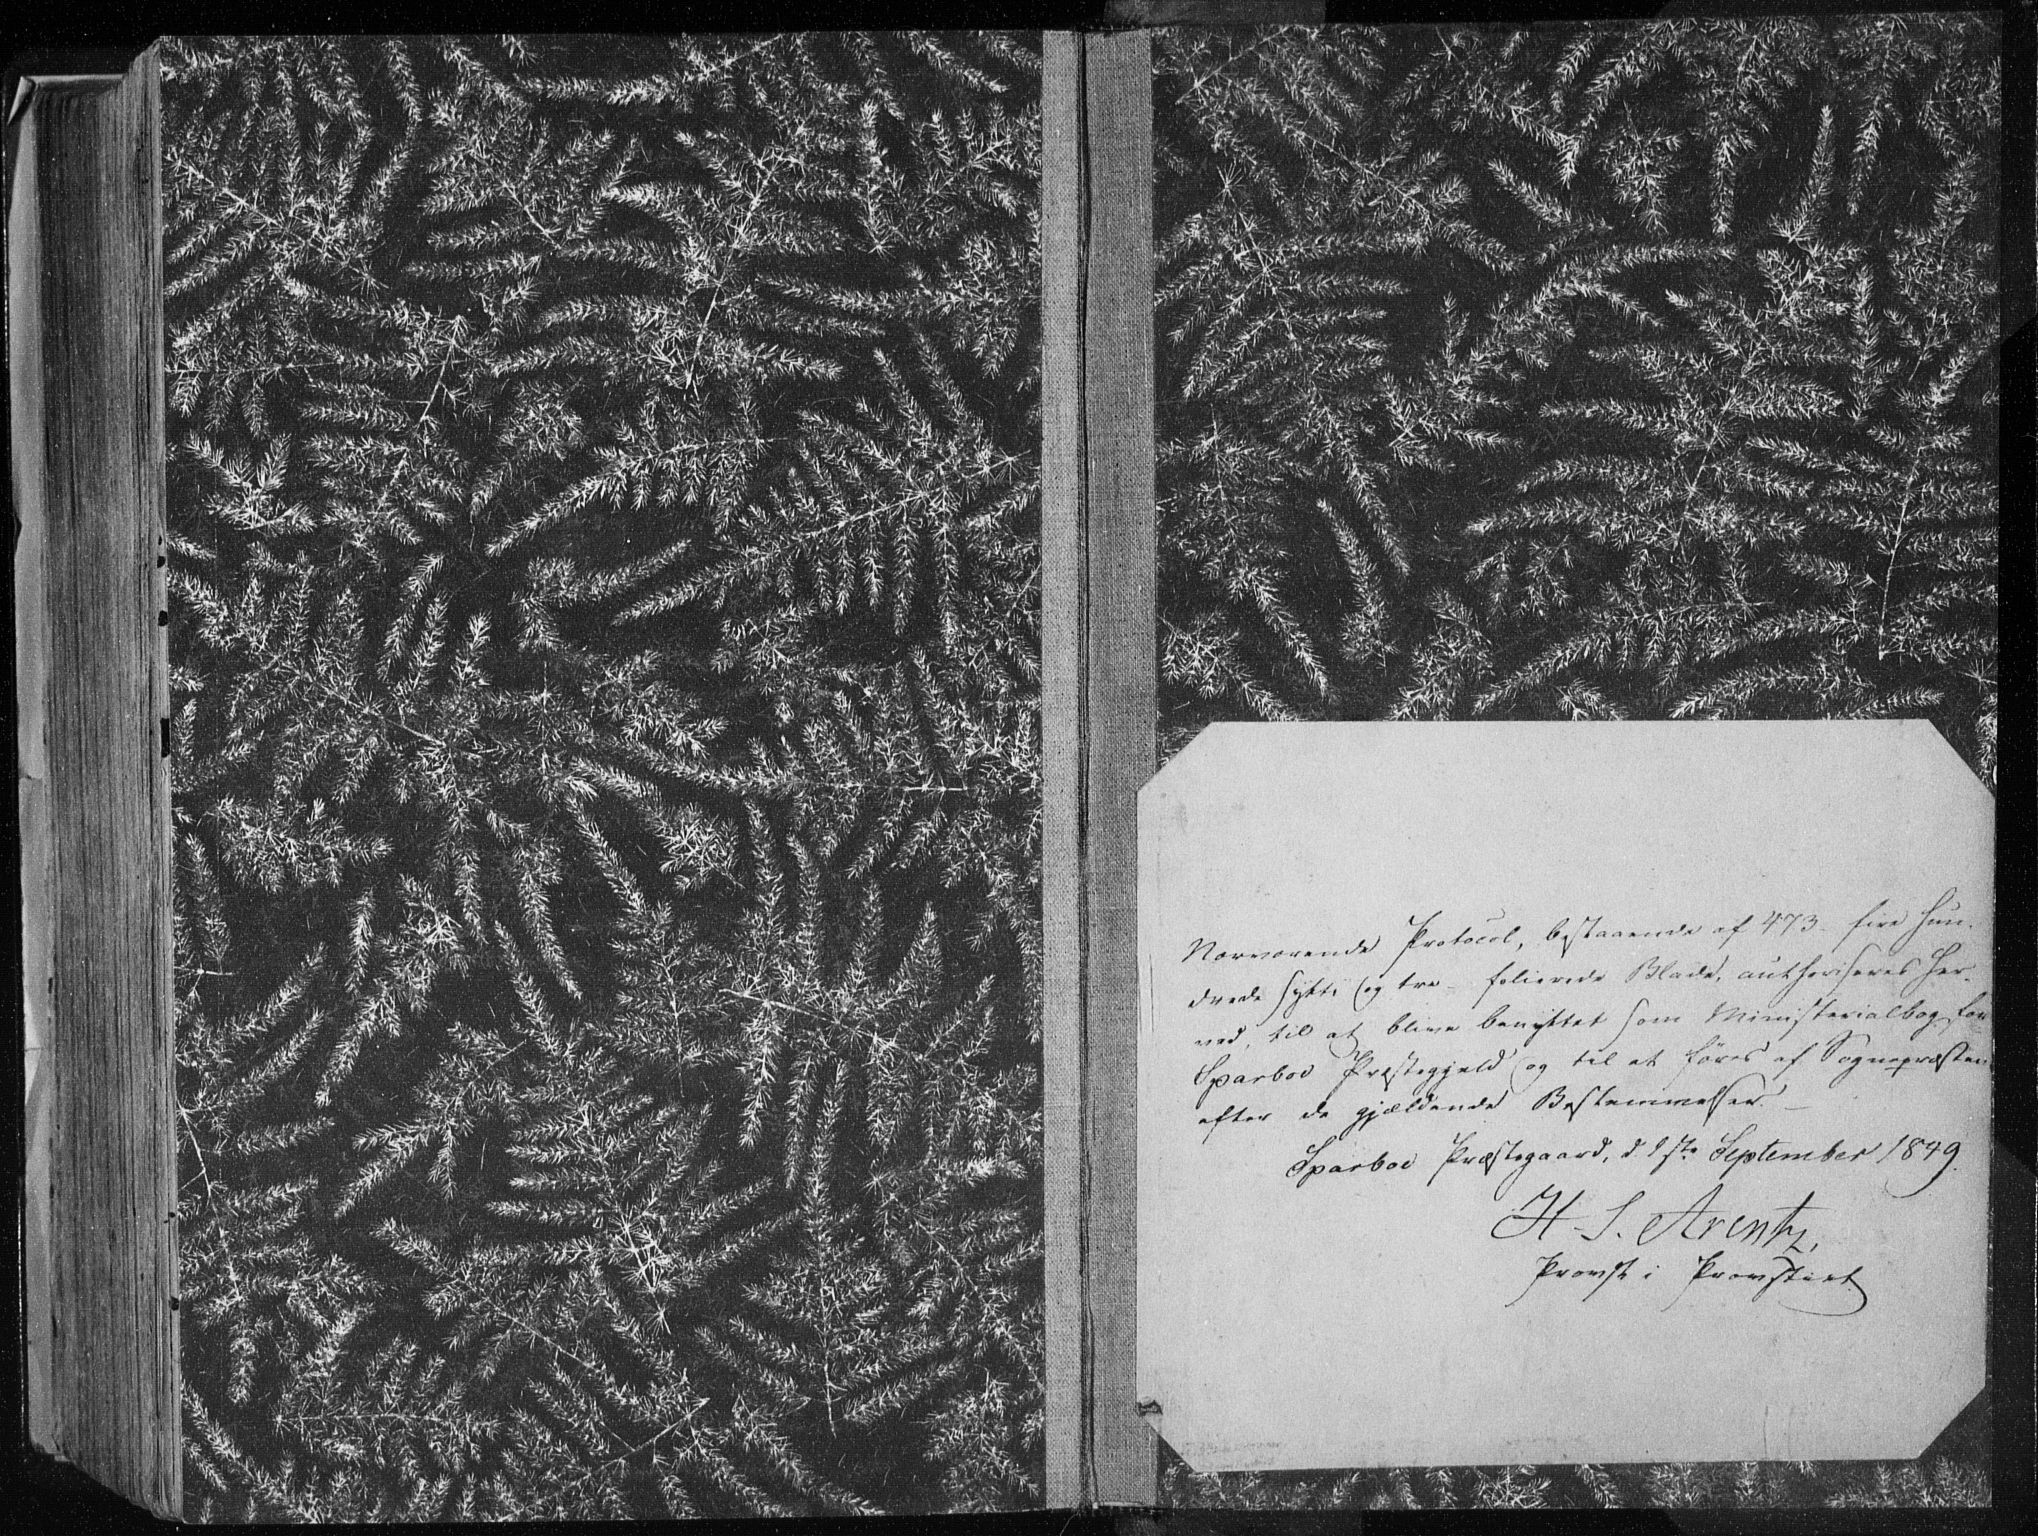 Nærværende Protocol, bestaaende af 473 fire hun-
drede sytti og tre – folierede Blade, authoriseres her-
ved, til at blive benyttet som Ministerialbog for
Sparboe Præstegjeld og til at føres af Sognepræsten
efter de gjældende Bestemmelser. –
Sparboe Præstegaard, d. 1ste September 1849.
H. S. Arentz,
Provst i Provstiet.